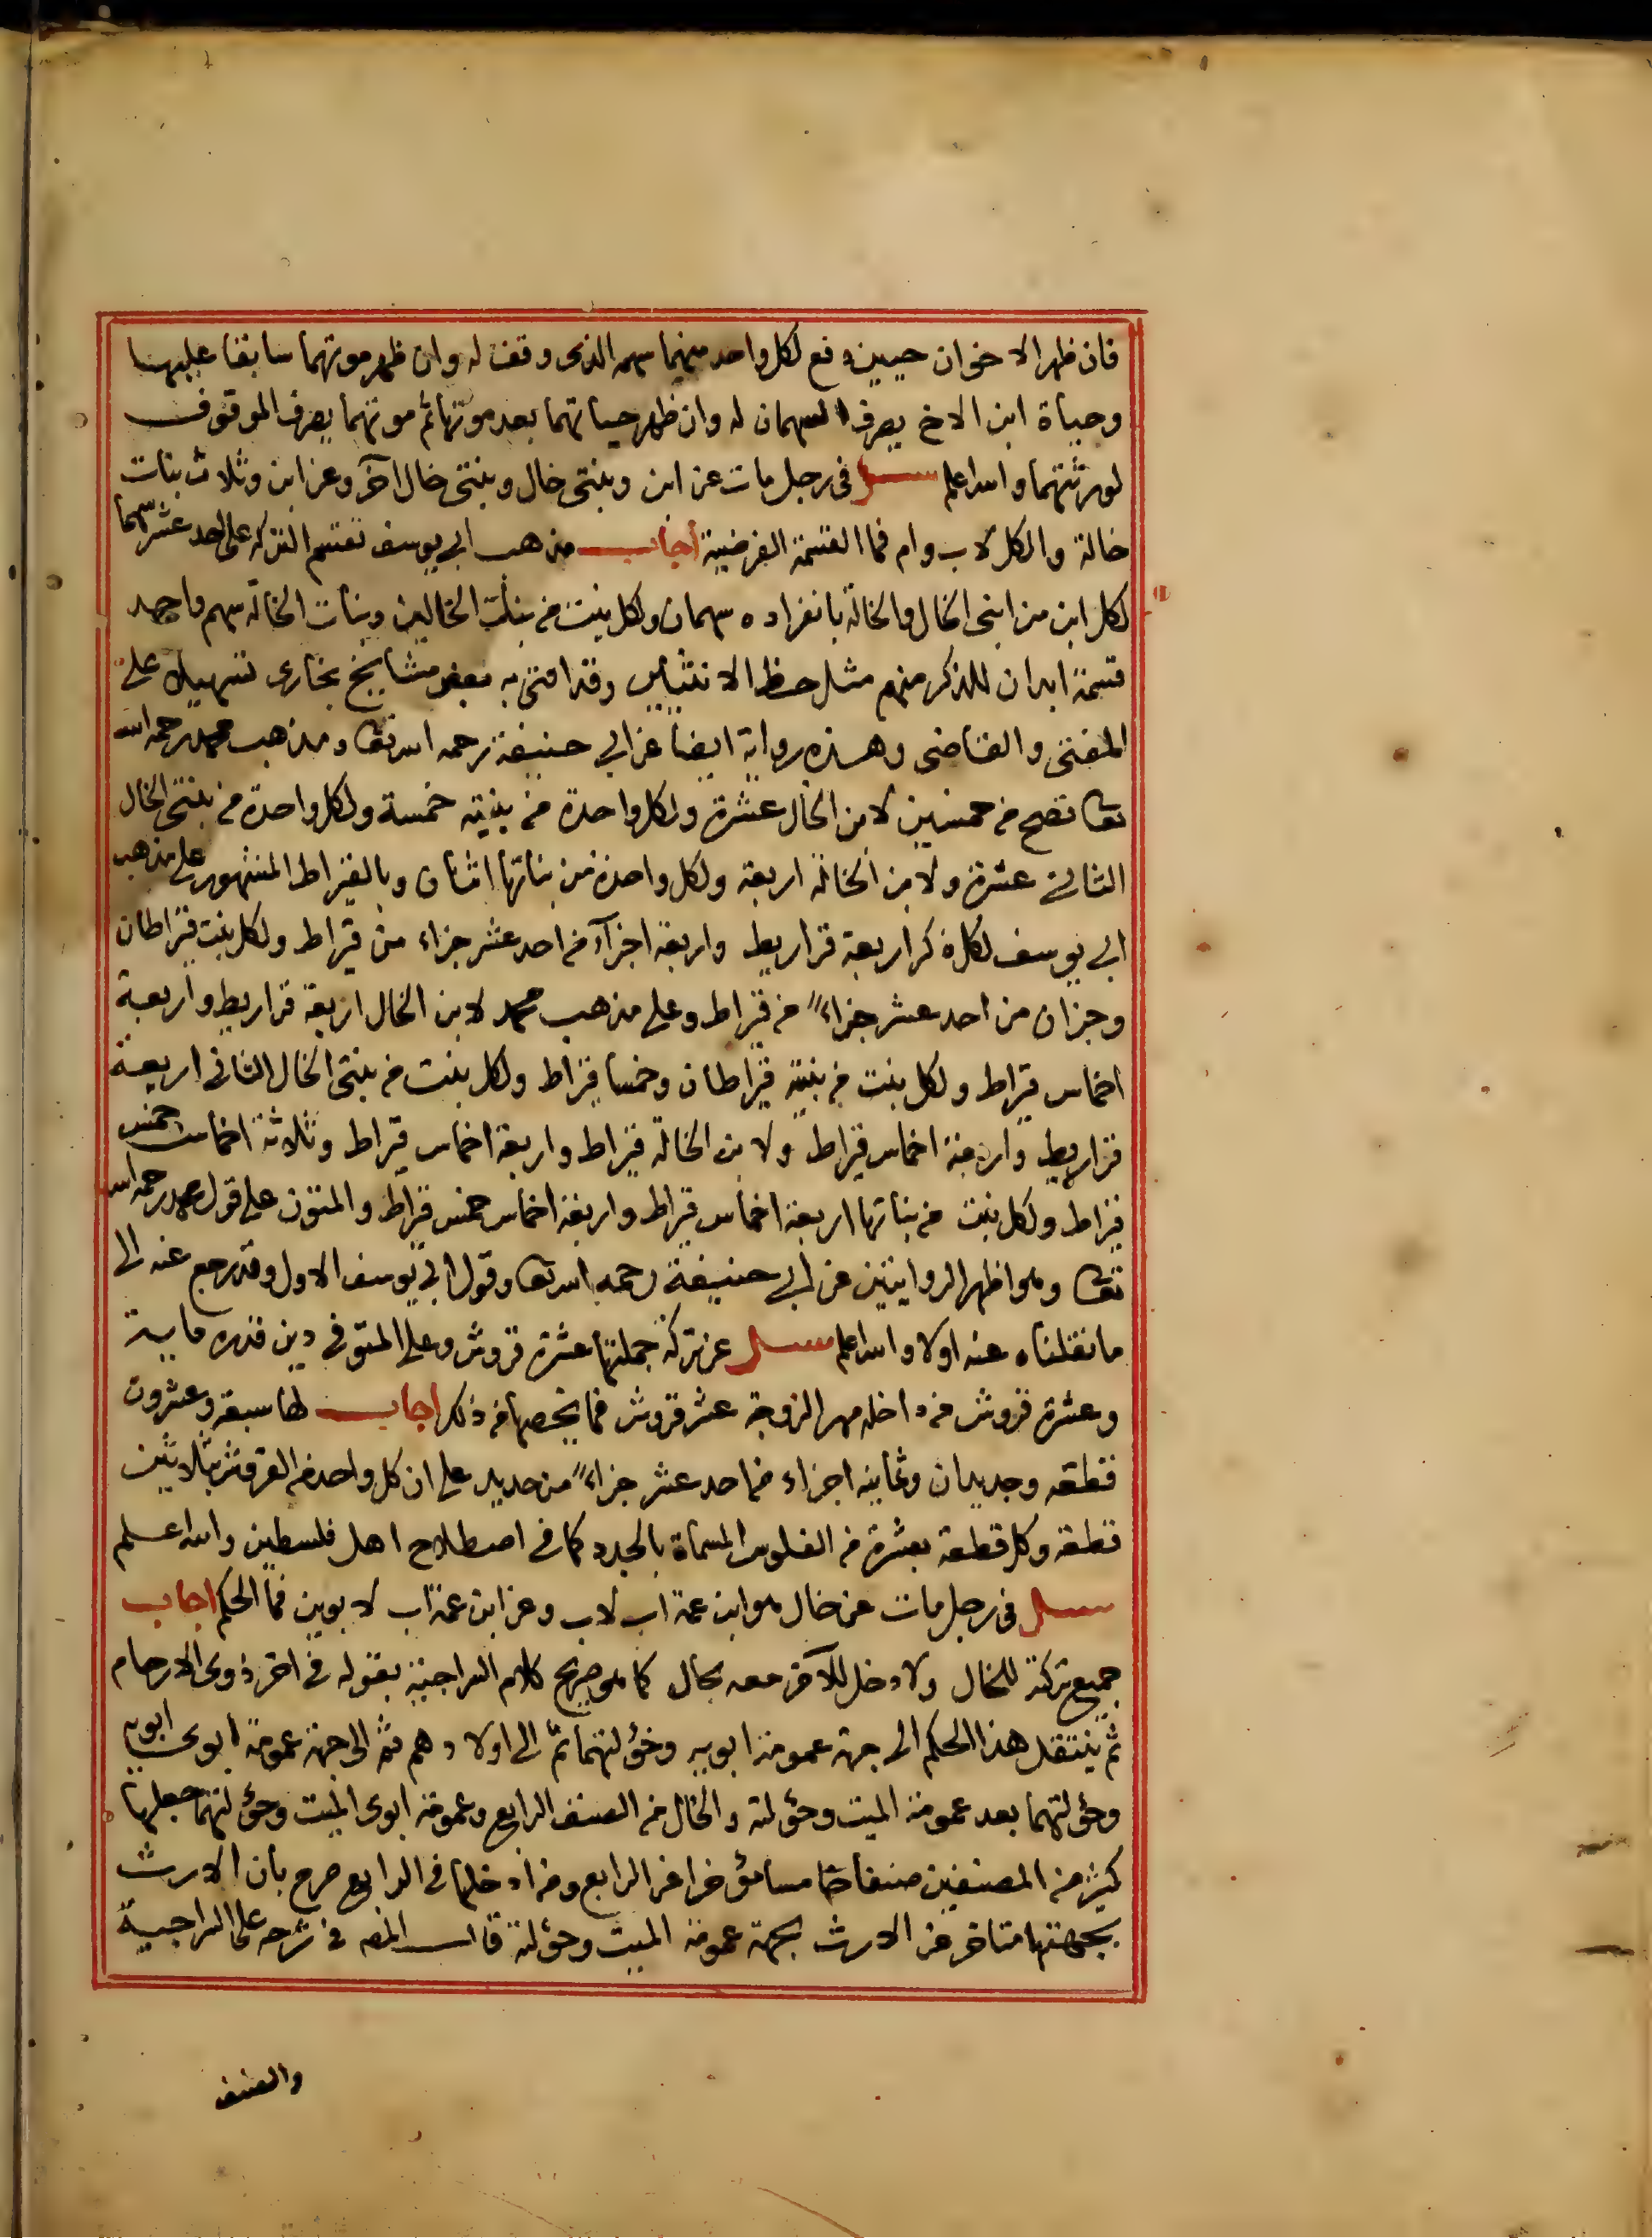 فان ظهر الاخوان حيين دفع لكل واحد منهما سهمه الذى وقف له وان ظهر موتهما سابقا عليهما
وحياة ابن الاخ يصرف السهمان له وان ظهر حياتهما بعد موتها ثم موتهما يصرف الموقوف
لورثتهما والله اعلم سئل فى رجل مات عن ابن وبنتى خال وبنتى خال اخر وعن ابن وثلاث بنات
خالة والكل لاب وام فما القسمة الفرضية اجاب مذهب ابي يوسف تقتسم التركه على احد عشر سهما
لكل ابن من ابنى الخال والخالة بانفراده سهمان ولكل بنت من بنات الخالين وبنات الخالة سهم واحد
قسمة ابدان للذكر منهم مثل حظ الانثيين وقد افتى به بعض مشايخ بخارى تسهيلا على
المفتى والقاضى وهذه رواية ايضا عن ابي حنيفة رحمه الله تعا ومذهب محمد رحمه الله
تعا تصح من خمسين لابن الخال عشرة ولكل واحدة من بنتيه خمسة ولكل واحدة من بنتى الخال
الثانى عشرة ولابن الخالة اربعة ولكل واحدة من بناتها اثنان وبالقيراط المشهور على مذهب
ابي يوسف لكل ذكر اربعة قراريط واربعة اجزآء من احد عشر جزاء من قيراط ولكل بنت قيراطان
وجزان من احد عشر جزاء من قيراط وعلى مذهب محمد لابن الخال اربعة قراريط واربعة
اخماس قيراط ولكل بنت من بنتيه قيراطان وخمسا قيراط ولكل بنت من بنتى الخال الثانى اربعة
قراريط واربعة اخماس قيراط ولابن الخالة قيراط واربعة اخماس قيراط وثلاثة اخماس خمس
قيراط ولكل بنت من بناتها اربعة اخماس قيراط واربعة اخماس خمس قيراط والمتون على قول محمد رحمه الله
تعا وهو اظهر الروايتين عن ابي حنيفة رحمه الله تعا وقول ابي يوسف الاول وقد رجع عنه الى
ما نقلناه عنه اولا والله اعلم سئل عن تركة جملتها عشرة قروش وعلى المتوفى دين قدره ماية
وعشرة قروش من داخله مهر الزوجة عشر قروش فما يخصها من ذلك اجاب لها سبعة وعشرون
قطعه وجديدان وثمانيه اجزاء من احد عشر جزاء من جديد على ان كل واحد من القروش بثلاثين
قطعة وكل قطعة بعشرة من الفلوس المسماة بالجدد كما فى اصطلاح اهل فلسطين والله اعلم
سئل فى رجل مات عن خال هو ابن عمة اب لاب وعن ابن عمة اب لابوين فما الحكم اجاب
جميع تركته للخال ولا دخل للآخر معه بحال كما هو صريح كلام السراجية بقوله فى اخر ذوى الارحام
ثم ينتقل هذا الحكم الى جهة عمومة ابويه وخؤلتهما ثم الى اولادهم ثم الى جهة عمومة ابوى ابويه
وخؤلتهما بعد عمومة الميت وخؤلته والخال من الصنف الرابع وعمومة ابوى الميت وخؤلتهما جعلها
كثير من المصنفين صنفا خامسا مؤخرا عن الرابع ومن ادخلها فى الرابع صرح بان الارث
بجهتها متاخر عن الارث بجهة عمومة الميت وخؤلته قال المص فى شرحه على السراجية
والصنف